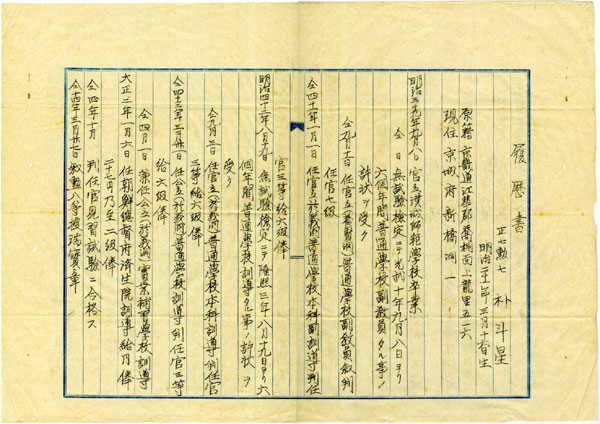 履歴書
正七勲七 朴斗星
明治二十一年三月十六日生
原籍 京畿道江華郡喬桐面上龍里五一六
現住 京城府斎橋洞一
明治三十九年九月八日 官立漢城師範學校卒業
仝日 無試験検定ニテ光武十年九月八日ヨリ
六個年間普通學校副教員タル事ノ
許状ヲ受ク
仝九月十一日 任官立普通學校副教員敘判
任官七級
仝四十一年一月一日 任官立普通學校本科副訓導判任
官三等給六級俸
明治四十二年八月十九日 無試験検定ニテ隆熙三年八月十九日ヨリ六
個年間普通學校訓導タル事ノ許状ヲ
受ク
仝九月三日 任官立普通學校本科訓導判任官
三等給六級俸
仝四十三年三月廿日 任公立普通學校訓導判任官三等
給六級俸
仝四月一日 兼任公立實業學校訓導
大正二年一月六日 任朝鮮總督府済生院訓導給月俸
二十七円乃至二級俸
仝四年十月 判任官見習試験ニ合格ス
仝十四年三月廿七日 敘勲八等授瑞寶章